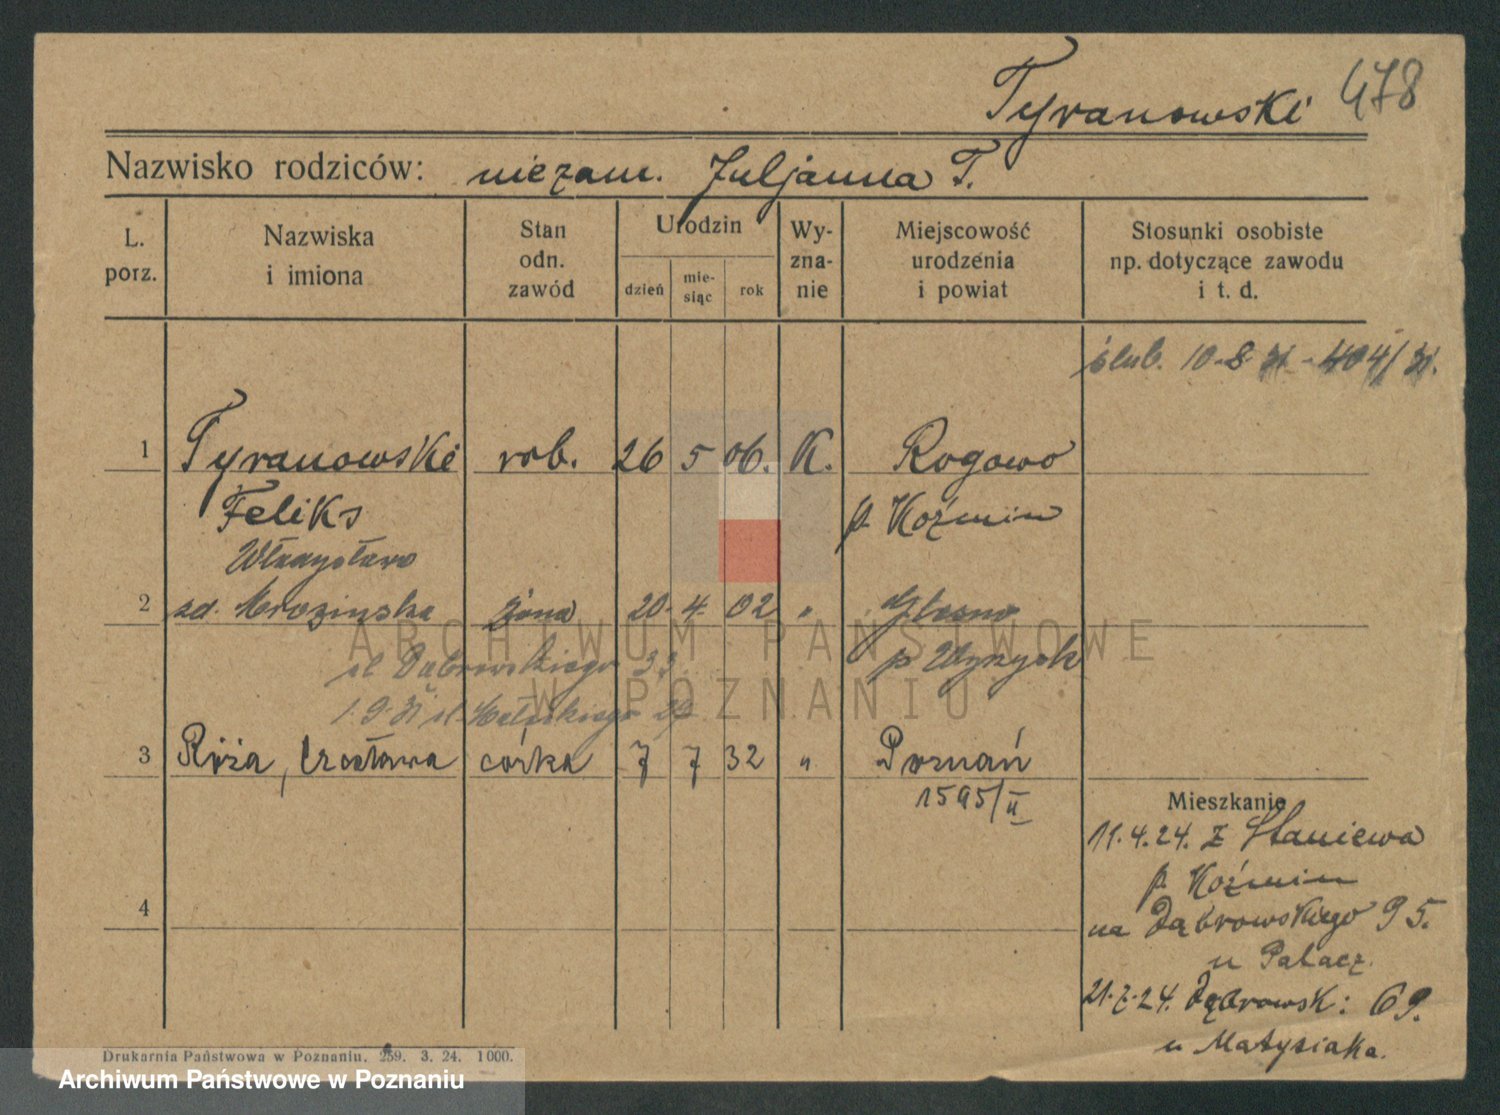 Tyranowski 478
Nazwisko rodziców: niezam. Juljanna T.
L. porz. Nazwiska i imiona Stan odn. zawód Urodzin dzień mie-siąc rok Wy-zna-nie Miejscowość urodzenia i powiat Stosunki osobiste np. dotyczące zawodu i t. d.
ślub. 10-8 31 - 404/31.
1 Tyranowski rob. 26 5 06. K. Rogowo
Feliks p. Koźmin
Władysława
2 zd. Mrozinska żona 20. 4. 02 "
p Wyrzysk
ul Dąbrowskiego 33
1.9.31 ul.
3 Róża, córka 7 7 32 " Poznań
1595/II
Mieszkanie
11.4.24. z Staniewa
p. Koźmin
4
na Dąbrowskiego 95.
u Palacz.
21.7.24. Dąbrowsk: 69.
u Matysiaka.
Drukarnia Państwowa w Poznaniu. 259. 3. 24. 1000.
ARCHIWUM PAŃSTWOWE
W POZNANIU
Archiwum Państwowe w Poznaniu